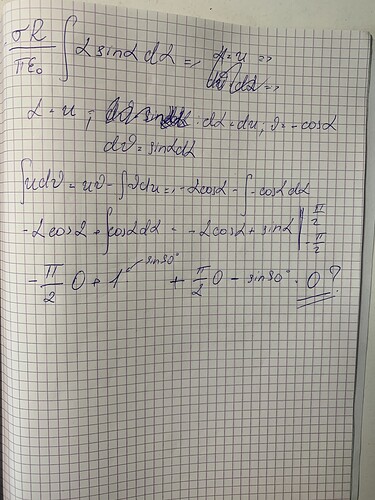 σR/πε₀ ∫ α sinα dα => α = u =>
α = u ; dα = du, ϑ = -cosα
dϑ = sinα dα
∫u dϑ = uϑ - ∫ϑ du => -α cosα - ∫-cosα dα
-α cosα + ∫cosα dα = -α cosα + sinα | π/2 -π/2
-π/2 0 + 1 sin90° + π/2 0 - sin90° = 0?